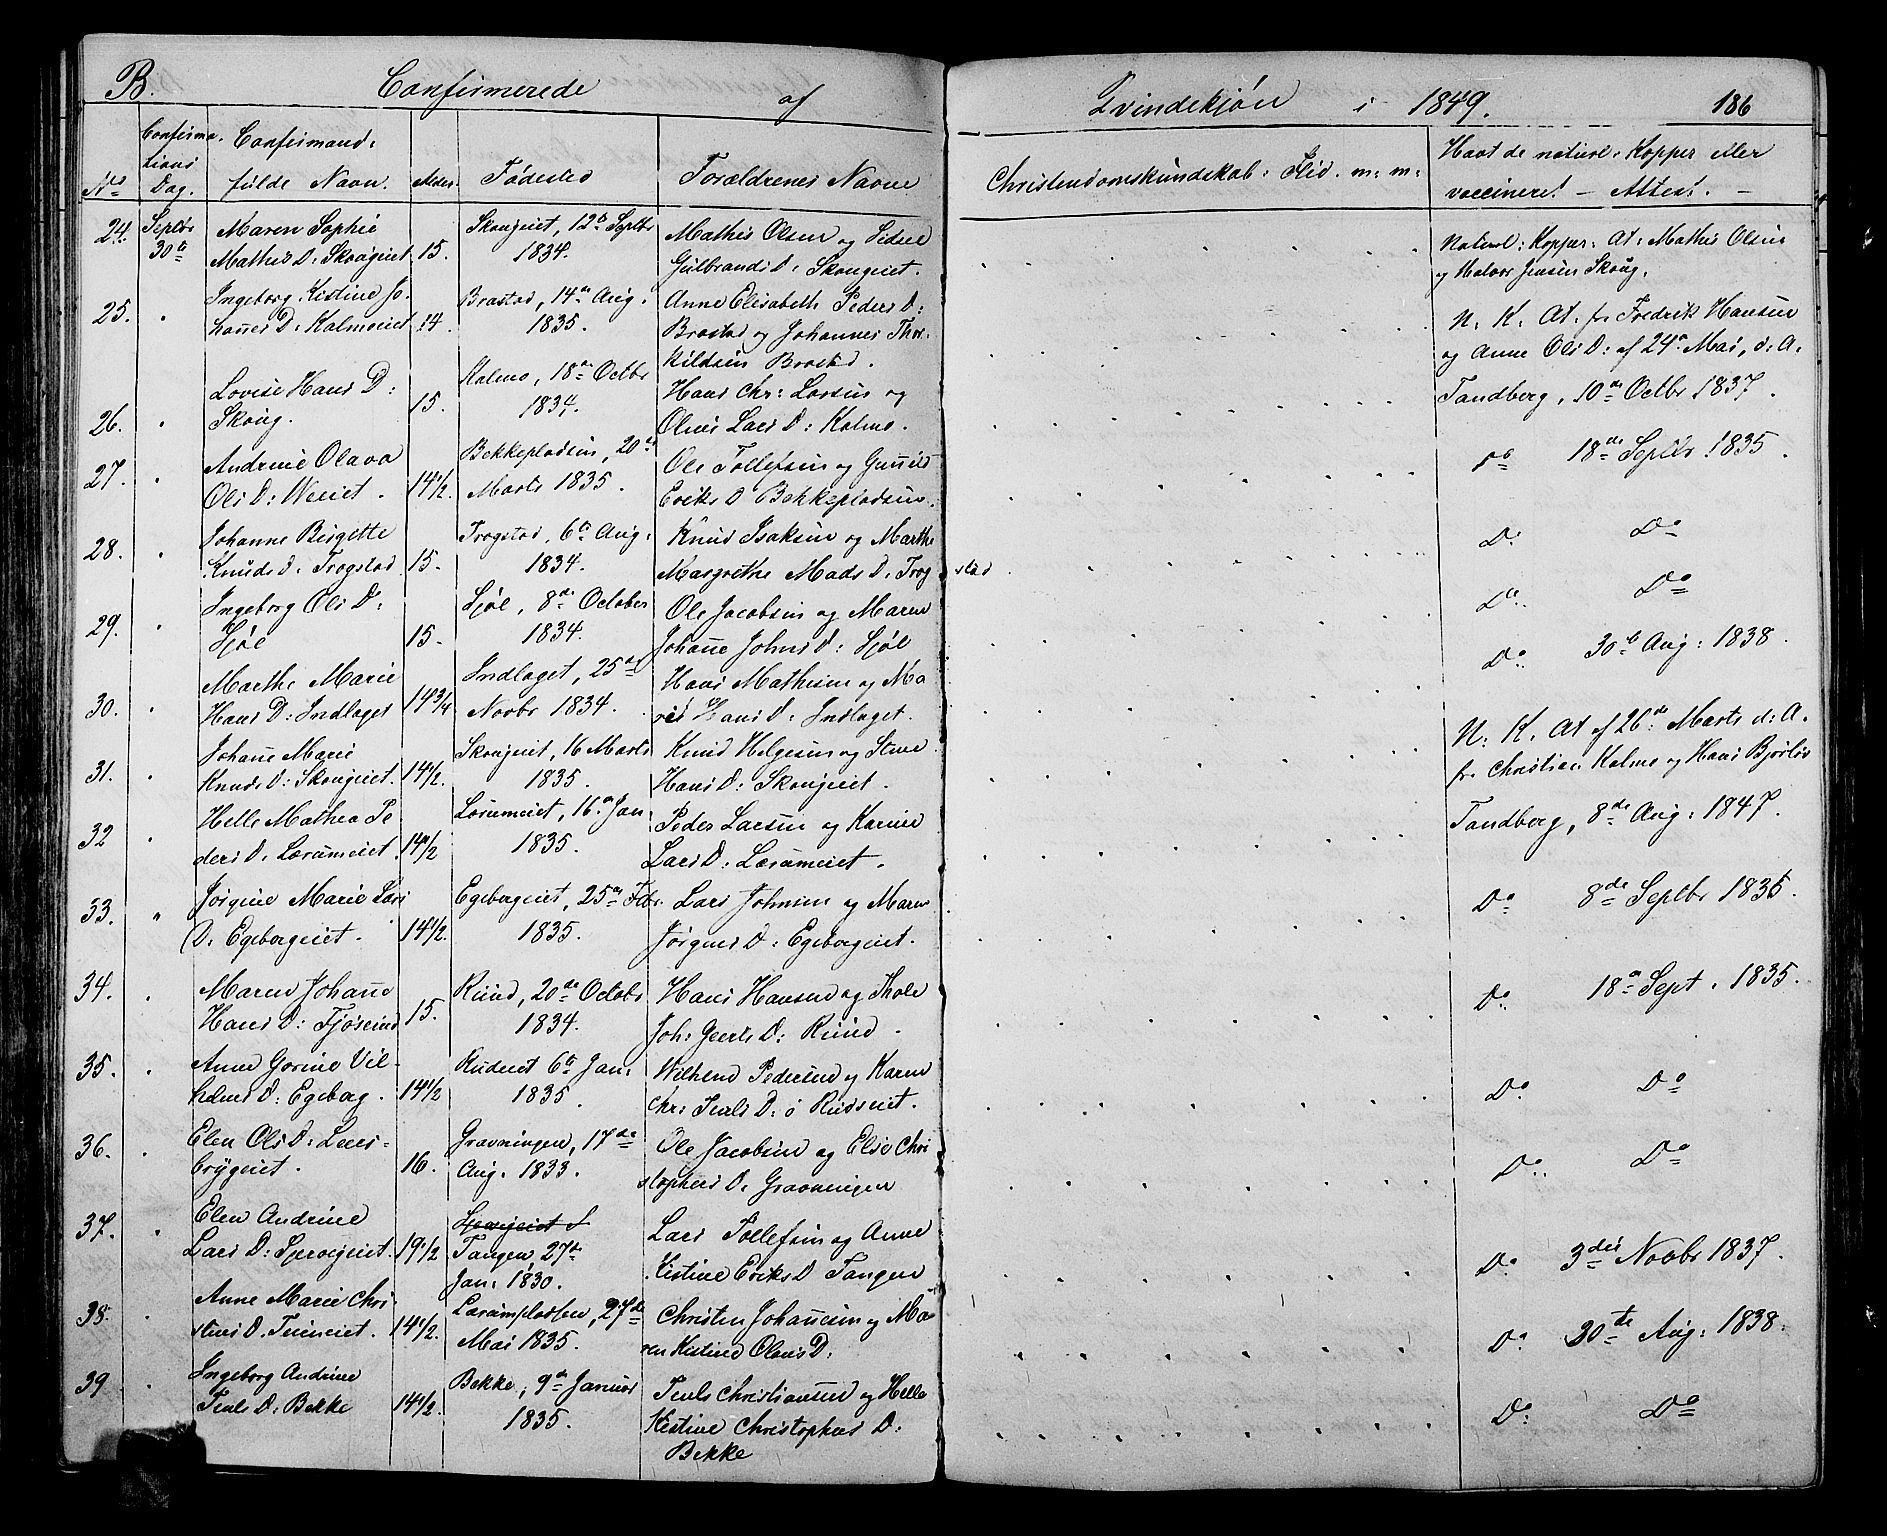 B. Confirmerede af Qvindekjøn i 1849. 186
No Confirmations Dag. Confirmand: fulde Navn. Alder. Fødested Forældrenes Navne Christendomskundskab: Flid. m: m: Havt de naturl: Kopper eller vaccineret – Attest. –
24. Septbr 30te Maren Sophie Skougeiet, 12te Septbr Mathis Olsen og Sidsel Naturl: Kopper: At: Mathis Olsen
Mathis D: Skougeiet 15. 1834. Gulbrands D: Skougeiet. og Halvor Jensen Skoug.
25. Ingeborg Kistine Jo- Brastad, 14de Aug. Anne Elisabeth Peders D: N: K: At: fr Fredrik Hansen
hannes D: Kalmoeiet 14. 1835. Brastad og Johannes Thor- og Anne Ols D: af 24de Mai, d: A.
kildsen Brastad.
26. Lovise Hans D: Kalmo, 18de Octbr Hans Chr: Larsen og Tandberg, 10de Octbr 1837.
Skoug. 15. 1834. Olnes Lars D: Kalmo.
27. Andrine Olava Bekkepladsen, 20de Ole Tollefsen og Gunild Do 18de Septbr 1835.
Ols D: 14 1/2. Marts 1835. Eriks D Bekkepladsen.
28. Johanne Birgitte Trogstad, 6te Aug: Knud Isaksen og Marthe D: Do
Knuds D: Trogstad 15. 1834. Margrethe Mads D: Trogstad
29. Ingeborg Ols D: Sjøl, 8de October Ole Jacobsen og Maren Do: Do
Sjøl 15. 1834. Johanne Johns D: Sjøl
30. Marthe Marie Indlaget, 25de Hans Mathisen og Ma- Do: 30te Aug: 1838.
Hans D: Indlaget 14 3/4 Novbr 1834. ries Hans D: Indlaget.
31. Johanne Marie Skougeiet, 16 Marts Knud Helgesen og Stine N: K: At af 26de Marts d: A.
Knuds D: Skougeiet. 14 1/2. 1835. Hans D: Skougeiet. fr Christian Kalmo og Hans
32 Helle Mathea Pe- 16de Jan Peder Larsen og Karine Tandberg, 8de Aug: 1847.
ders D: Lærumeiet. 14 1/2 1835. Lars D: Lærumeiet.
33. Jørgine Marie Lars Egebergeiet, 25de Febr. Lars Johnsen og Maren Do 8de Septbr 1835.
D: Egebergeiet. 14 1/2. 1835. Jørgens D: Egebergeiet.
34. Maren Johanne Ruud, 20de Octobr Hans Hansen og Thale Do 18de Sept. 1835.
Hans D: 15. 1834. Joh: Geerts D: Ruud.
35. Anne Gorine Vil- 6te Jan: Wilhem Pedersen og Karen Do Do
helms D: Egeberg. 14 1/2 1835. Chr: D:
36. Elen Ols D: Gravningen, 17de Ole Jacobsen og Else Chri- Do: Do
16. Aug. 1833. stophers D: Gravningen
37. Elen Andrine Lars Tollefsen og Anne Do 3die Novbr 1837.
Lars D: 19 1/2 Tangen 27de Kistine Eriks D Tangen
Jan: 1830.
38. Anne Marie Chri- 27de Christen Johannesen og Ma- Do 30te Aug: 1838.
stens D. 14 1/2. Mai 1835. ren Kistine Olaves D:
39 Ingeborg Andrine Bekke, 9de Januar Truls Christiansen og Helle D: Do
Truls D: Bekke 14 1/2. 1835. Kistine Christophers D:
Bekke